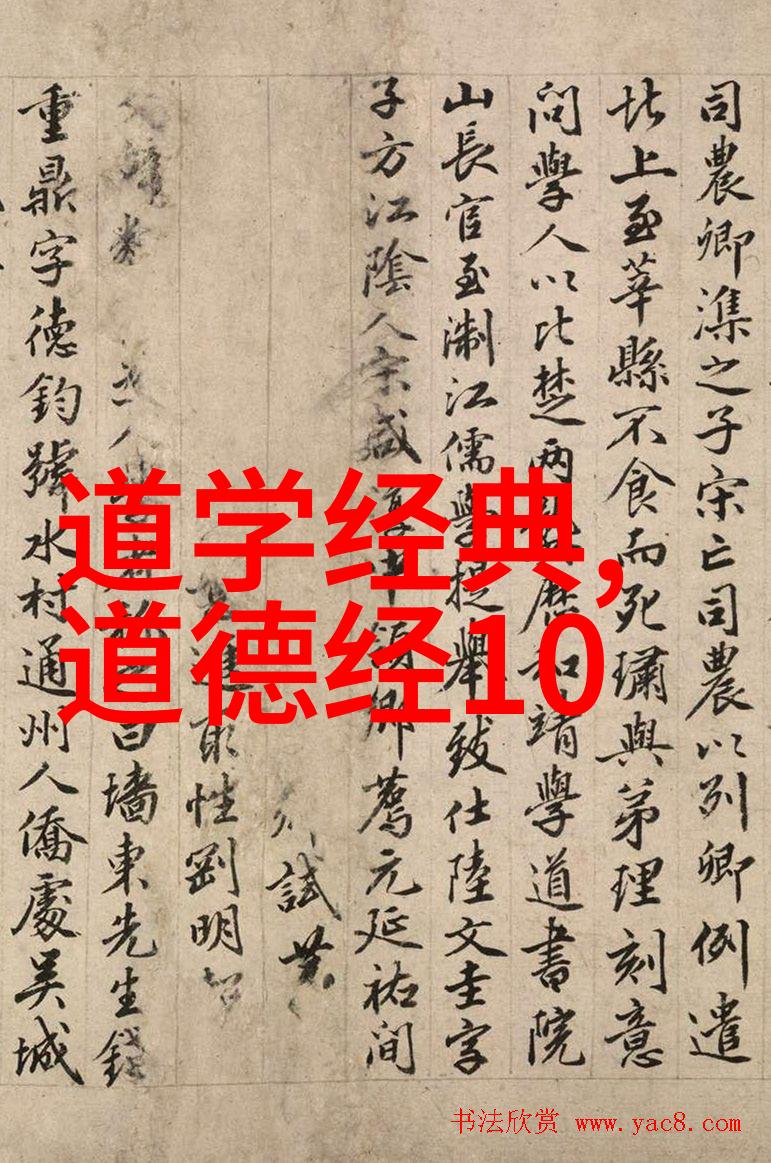 司農卿潗之子宋亡司農以列卿例遣
北上至莘縣不食而死琦與弟理刻意
問學人以比楚两龔歷和靖學道書院
山長官至淛江儒學提舉致仕陸文圭字
子方江陰人宋咸淳中領鄉薦元延祐間
試
進取性劉明
人 曰墻東先生錢
重鼎字德鈞號水村通州人僑處吴城
道学经典,
道德经10
书法欣赏 www.yac8.com